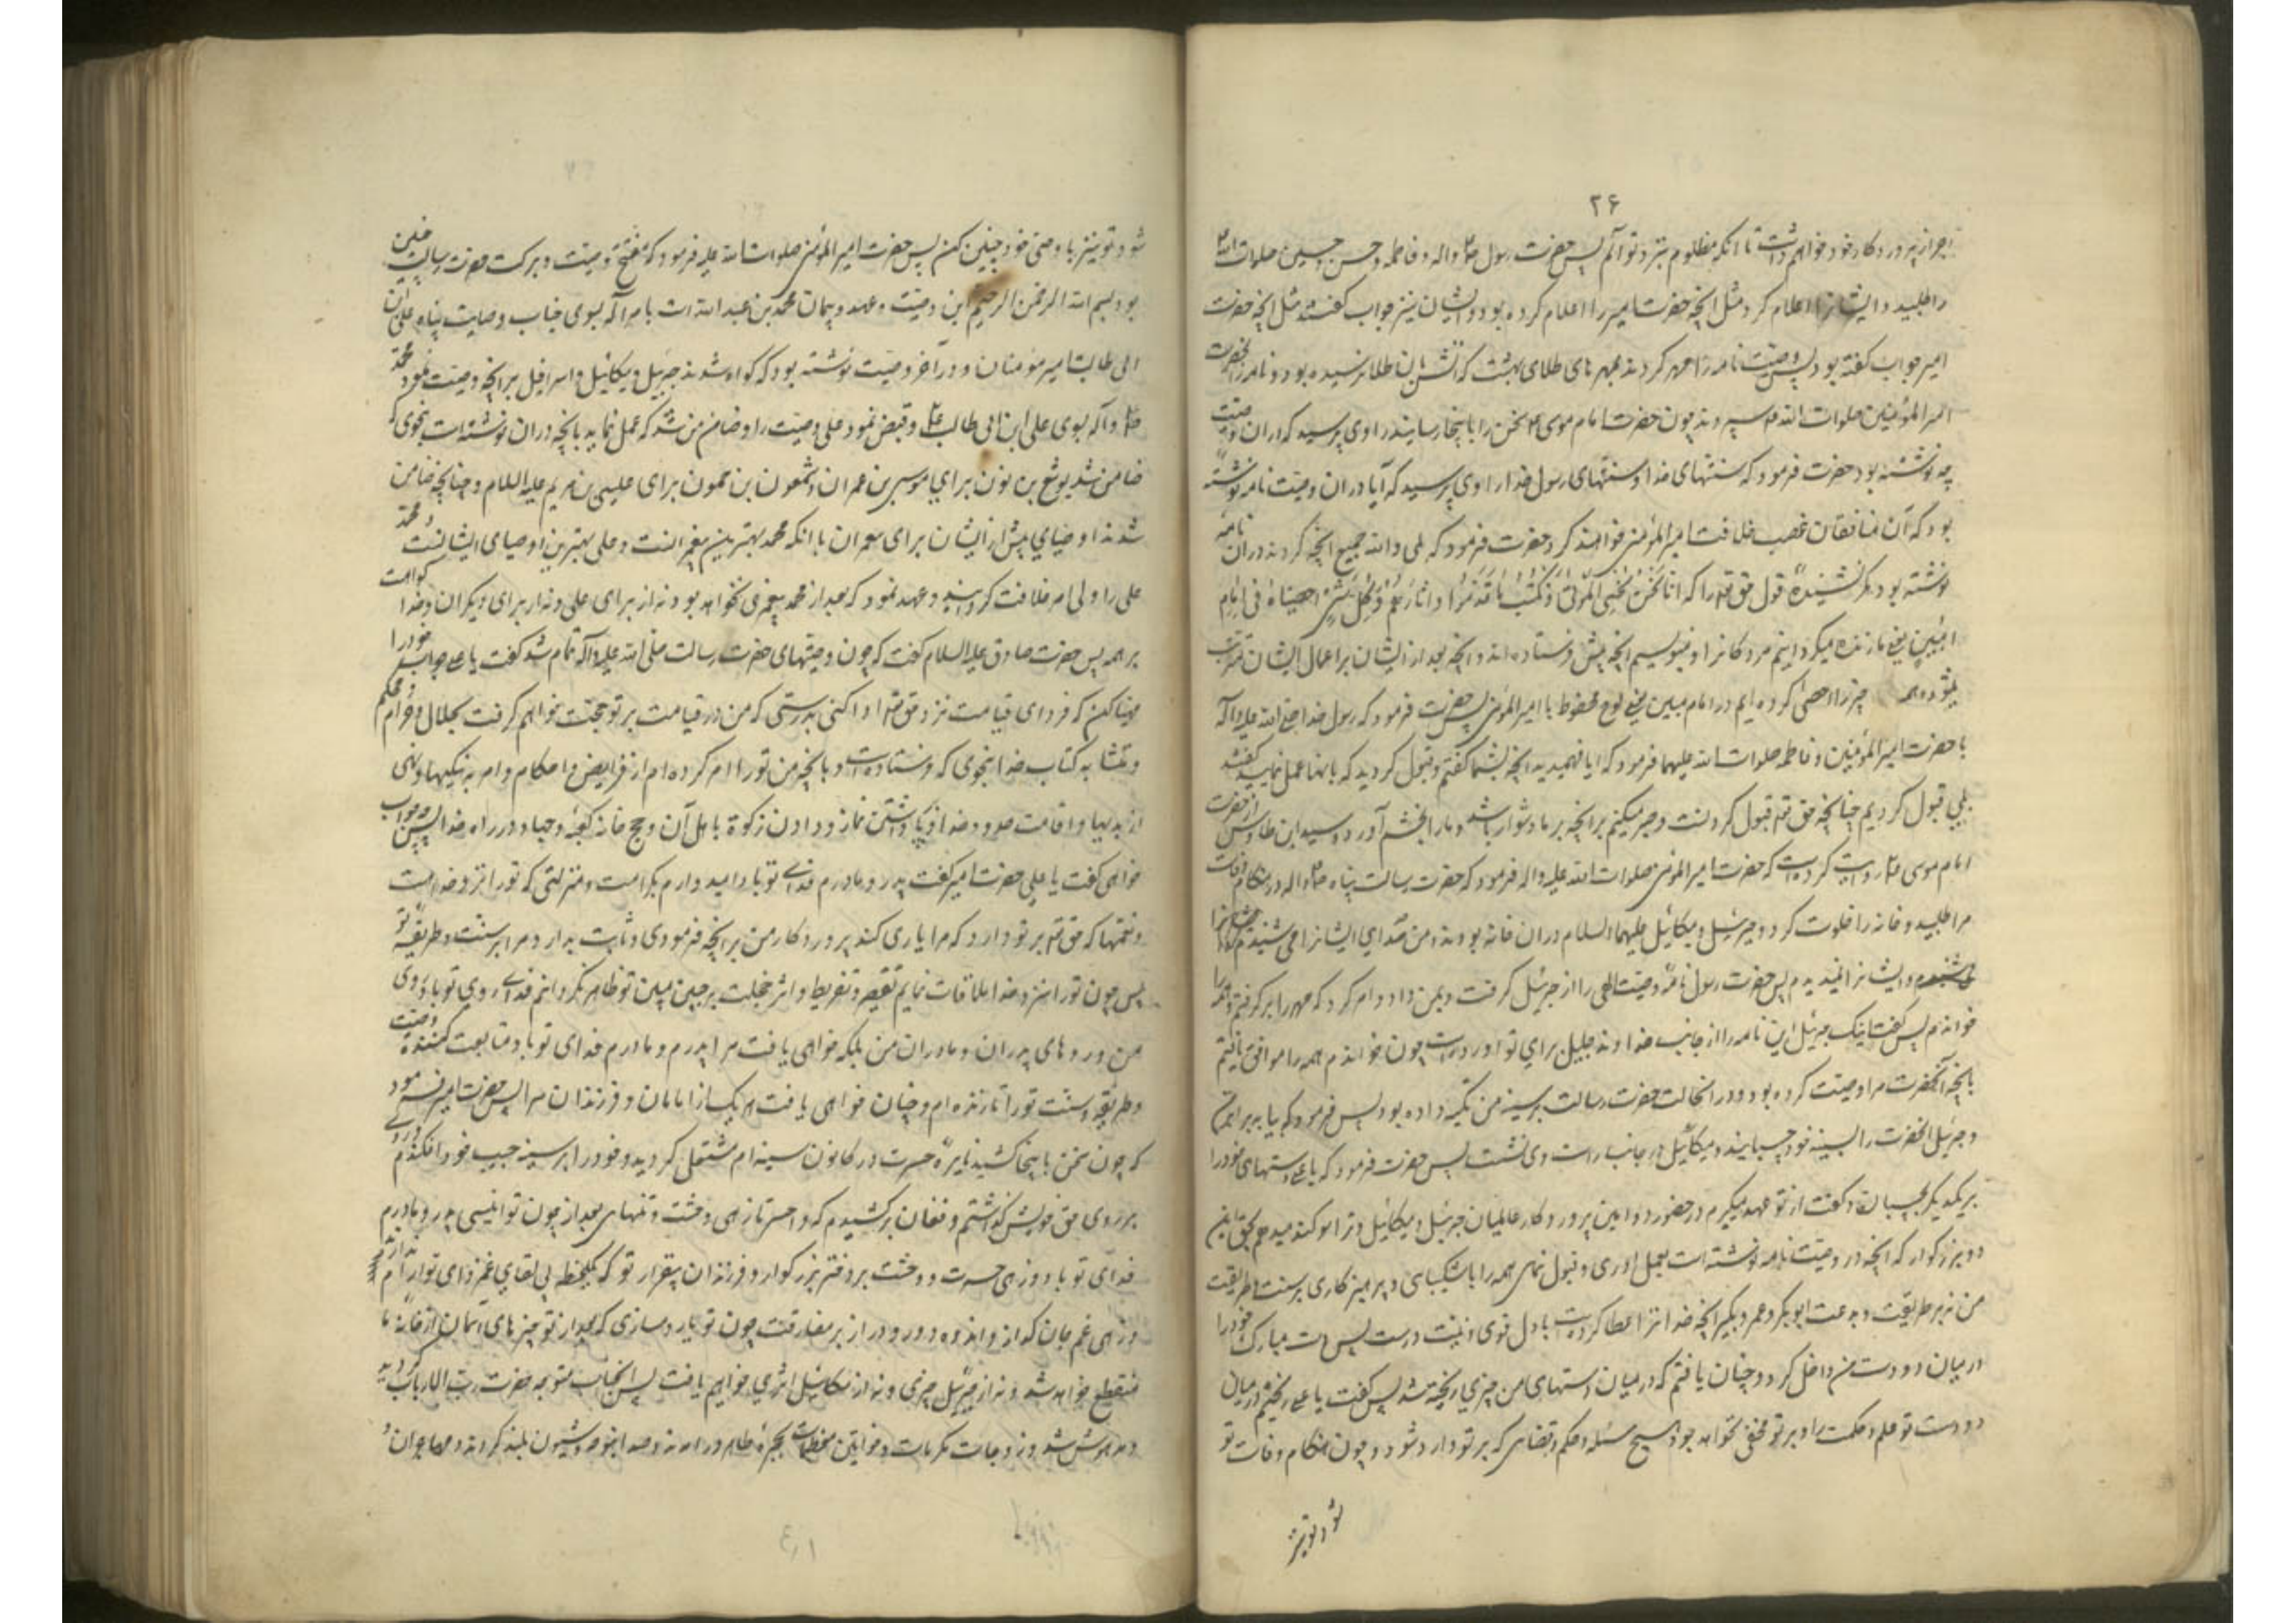 ۲۶
اجر از پروردگار خود خواهم داشت تا آنکه مظلوم بنزد تو آیم پس حضرت رسول ص واله و فاطمه و حسن و حسین صلوات الله
را طلبید و ایشانرا اعلام کرد مثل آنچه حضرت امیر را اعلام کرده بود و ایشان نیز جواب گفتند مثل آنچه حضرت
امیر جواب گفته بود پس وصیت نامه را مهر کردند بمهرهای طلای بهشت که آتش بان طلا نرسیده بود و نامه را بحضرت
امیر المؤمنین صلوات الله علیه سپردند چون حضرت امام موسی ع سخن را باینجا رسانید راوی پرسید که در ان وصیت
چه نوشته بود حضرت فرمود که سنتهای خدا و سنتهای رسول خدا راوی پرسید که آیا در ان وصیت نامه نوشته
بود که آن منافقان غصب خلافت امیر المؤمنین خواهند کرد حضرت فرمود که بلی والله جمیع آنچه کردند در ان نامه
نوشته بود مگر نشنیده قول حق تعالی را که انا نحن نحیی الموتی و نکتب ما قدموا و آثارهم و کل شیء احصیناه فی امام
مبین یعنی ما زنده میگردانیم مردگانرا و مینویسیم آنچه پیش فرستاده اند و آنچه بعد از ایشان بر اعمال ایشان مترتب
میشود و همه چیز را احصی کرده ایم در امام مبین یعنی لوح محفوظ یا امیر المؤمنین پس حضرت فرمود که رسول خدا صلی الله علیه وآله
با حضرت امیر المؤمنین و فاطمه صلوات الله علیهما فرمود که ایا فهمیدید آنچه بشما گفتم و قبول کردید که بانها عمل نمایید گفتند
بلی قبول کردیم چنانچه حق تعالی قبول کردنست و صبر میکنیم بر آنچه بر ما دشوار باشد و ما را بخشم آورد و سید ابن طاوس از حضرت
امام موسی ع روایت کرده است که حضرت امیر المؤمنین صلوات الله علیه واله فرمود که حضرت رسالت پناه ص واله در هنگام وفات
مرا طلبید و خانه را خلوت کرد و جبرئیل و میکائیل علیهما السلام در ان خانه بودند و من صدای ایشانرا می شنیدم
و ایشانرا نمیدیدم پس حضرت رسول نامه وصیت الهی را از جبرئیل گرفت و بمن داد و امر کرد که مهر را برگرفتم و نامه را
خواندم پس گفت اینک جبرئیل این نامه را از جانب خداوند جلیل برای تو اورده است چون خواندم همه را موافق یافتم
بانچه آنحضرت مرا وصیت کرده بود و در انحالت حضرت رسالت بر سینه من تکیه داده بود پس فرمود که یا
و جبرئیل انحضرت را بسینه خود چسپانید و میکائیل در جانب راست وی نشست پس حضرت فرمود که یا علی دستهای خود را
بر یکدیگر بچسبان و گفت از تو عهد میگیرم در حضور دو امین پروردگار عالمیان جبرئیل و میکائیل و ترا سوگند میدهم بحق این
دو بزرگوار که آنچه در وصیت نامه نوشته است بعمل اوری و قبول نمای همه را با شکیبای و پرهیزکاری بر سنت و طریقت
من نه بر طریقت و بدعت ابو بکر و عمر و بگیر آنچه خدا ترا عطا کرده است با دل قوی و نیت درست پس دست مبارک خود را
در میان دو دست من داخل کرد و چنان یافتم که در میان دستهای من چیزی ریخته شد پس گفت یا علی ریختم در میان
دو دست تو علم و حکمت را و بر تو مخفی نخواهد بود هیچ مسئله و حکم و قضای که بر تو وارد شود و چون هنگام وفات تو
شود تو نیز
شود تو نیز با وصی خود چنین کن پس حضرت امیر المؤمنین صلوات الله علیه فرمود که مفتح وصیت و برکت حضرت رسالت چنین
بود بسم الله الرحمن الرحیم این وصیت و عهد و پیمان محمد بن عبد الله است بامر اله بسوی جناب وصایت پناه علی ابن
ابی طالب امیر مومنان و در آخر وصیت نوشته بود که گواه شدند جبرئیل و میکائیل و اسرافیل بر آنچه وصیت نمود محمد
ص وآله بسوی علی ابن ابی طالب ع و قبض نمود علی وصیت را و ضامن شد که عمل نماید بانچه در ان نوشته است بنحوی که
ضامن شد یوشع بن نون برای موسی بن عمران و شمعون بن حمون برای عیسی بن مریم علیه السلام و چنانچه ضامن
شدند اوصیای پیش از ایشان برای پیغمبران با انکه محمد بهترین پیغمبرانست و علی بهترین اوصیای ایشانست و محمد
علی را ولی امر خلافت گردانید و عهد نمود که بعد از محمد پیغمبری نخواهد بود نه از برای علی و نه از برای دیگران و خدا گواهست
بر همه پس حضرت صادق علیه السلام گفت که چون وصیتهای حضرت رسالت صلی الله علیه وآله تمام شد گفت یا علی جواب خود را
مهیا کن که فردای قیامت نزد حق تعالی ادا کنی بدرستی که من در قیامت بر تو حجت خواهم گرفت بحلال و حرام و محکم
و متشابه کتاب خدا بنحوی که فرستاده است و بانچه من تو را امر کرده ام از فرایض و احکام و امر به نیکیها و نهی
از بدیها و اقامت حدود خدا و بپا داشتن نماز و دادن زکوة باهل آن و حج خانه کعبه و جهاد در راه خدا پس چه جواب
خواهی گفت یا علی حضرت امیر گفت پدر و مادرم فدای تو باد امیدوارم بکرامت و منزلتی که تو را نزد خداست
و نعمتها که حق تعالی بر تو دارد که مرا یاری کند پروردگار من بر انچه فرمودی و ثابت بدارد مرا بر سنت و طریقه تو
پس چون تو را نزد خدا ملاقات نمایم تقصیر و تفریط و اثر خجلت بر جبین مبین تو ظاهر نگردانم فدای روی تو باد روی
من و روهای پدران و مادران من بلکه خواهی یافت مرا پدرم و مادرم فدای تو باد متابعت کننده وصیت
و طریقه و سنت تو را تا زنده ام و چنان خواهی یافت هر یک از امامان و فرزندان مرا پس حضرت امیر فرمود
که چون سخن باینجا کشید نایره حسرت در کانون سینه ام مشتعل گردید و خود را بر سینه حبیب خود افکندم
بر روی حق خویش گذاشتم و فغان برکشیدم که وا حسرتا زهی وحشت و تنهای بعد از چون تو انیسی پدر و مادرم
فدای تو باد و زهی حسرت و وحشت بر دختر بزرگوار و فرزندان بیقرار تو که یکلحظه بی لقای غمزدای تو ارام
و زهی غم جان گداز و اندوه دور و دراز بر مفارقت چون تو یار دمسازی که بعد از تو چیزهای آسمان از خانه ما
منقطع خواهد شد و نه از جبرئیل چیزی و نه از میکائیل اثری خواهیم یافت پس آنجناب متوجه حضرت رب الارباب گردید
و مدهوش شد و زوجات مکرمات و خواتین معظمات بحجره طاهره در امدند و صدا بنوحه و شیون بلند کردند و مهاجران و